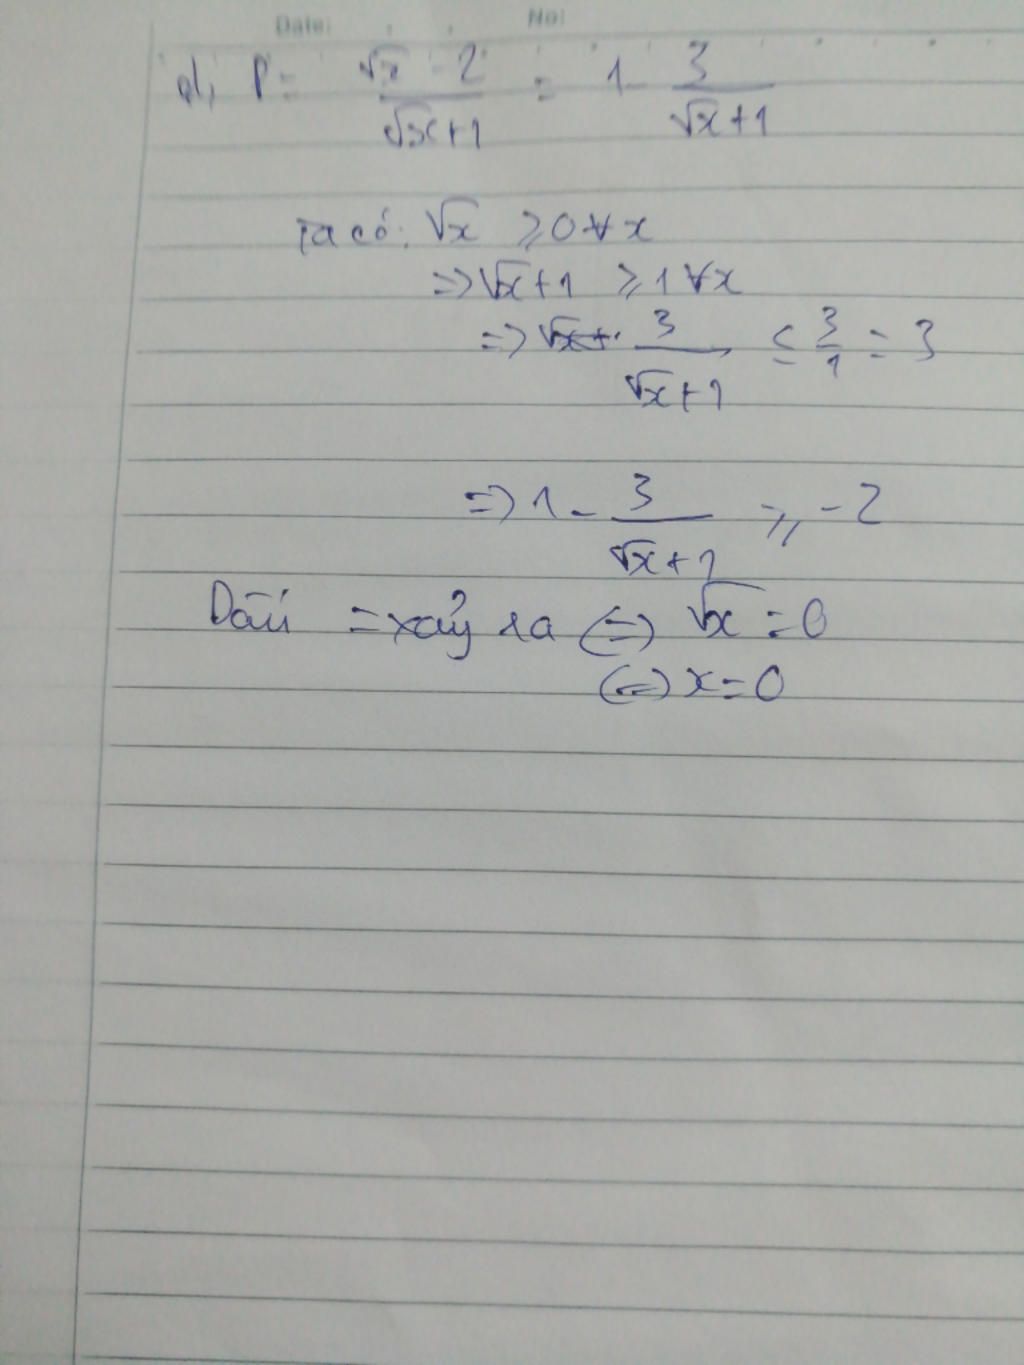 Date: No:
d, P = \frac{√x - 2}{√x+1} = 1 - \frac{3}{√x+1}
Ta có: √x ≥ 0 ∀x
=> √x+1 ≥ 1 ∀x
=> \frac{3}{√x+1} ≤ \frac{3}{1} = 3
=> 1 - \frac{3}{√x+1} ≥ -2
Dấu = xảy ra <=> √x = 0
<=> x = 0